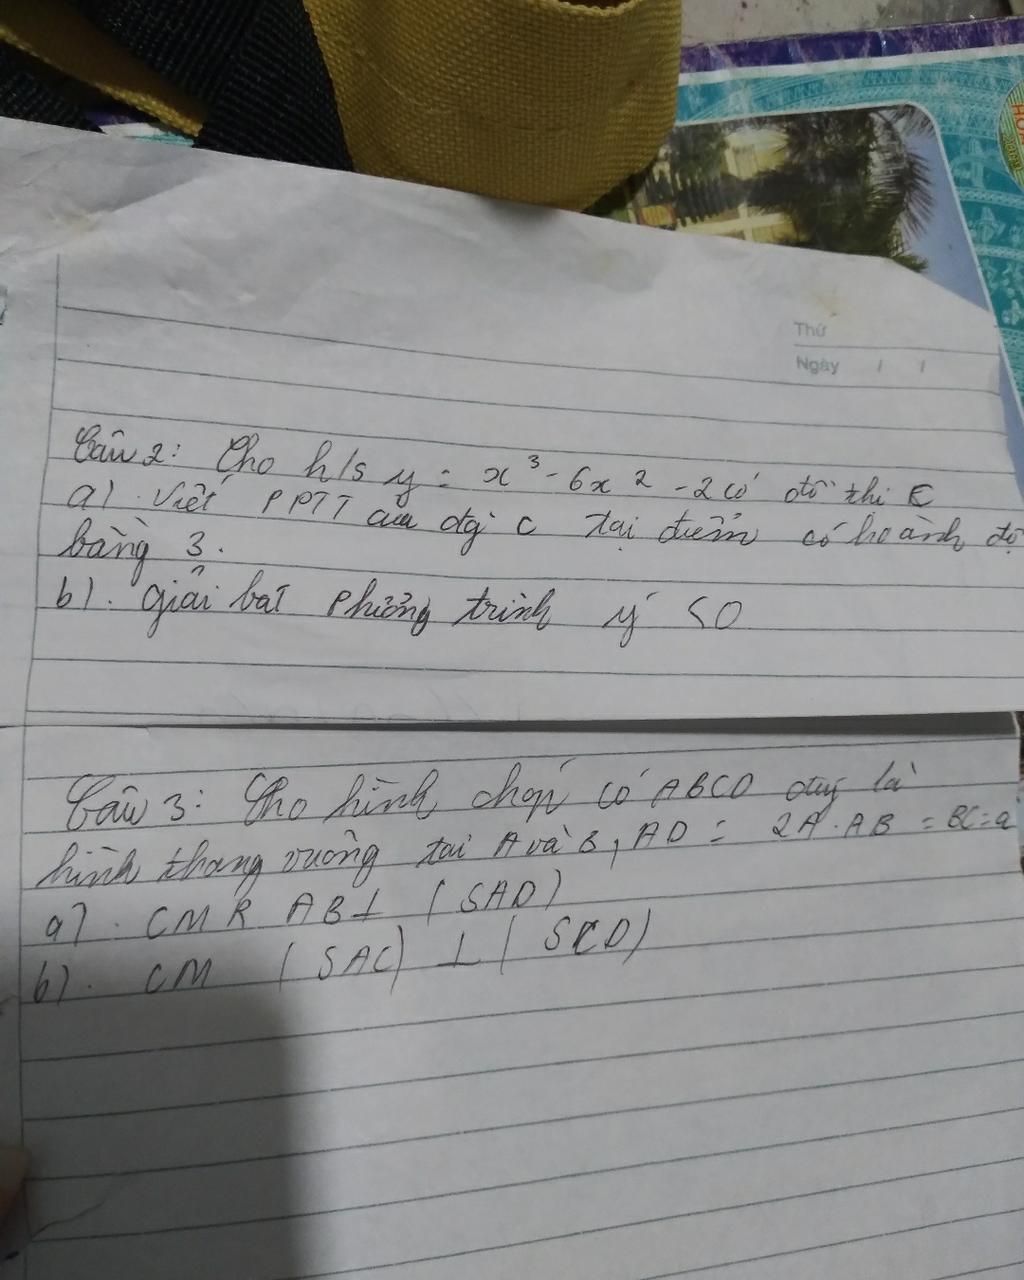 Thứ
Ngày / /
Câu 2: Cho h/s y = x³ - 6x² - 2 có đồ thị C
a). Viết PPTT của đg C tại điểm có hoành độ
bằng 3.
b). giải bất phương trình y' < 0
Câu 3: Cho hình chóp có ABCD đáy là
hình thang vuông tại A và B, AD = 2A. AB = BC = a
a). CMR AB ⊥ (SAD)
b). CM (SAC) ⊥ (SCD)